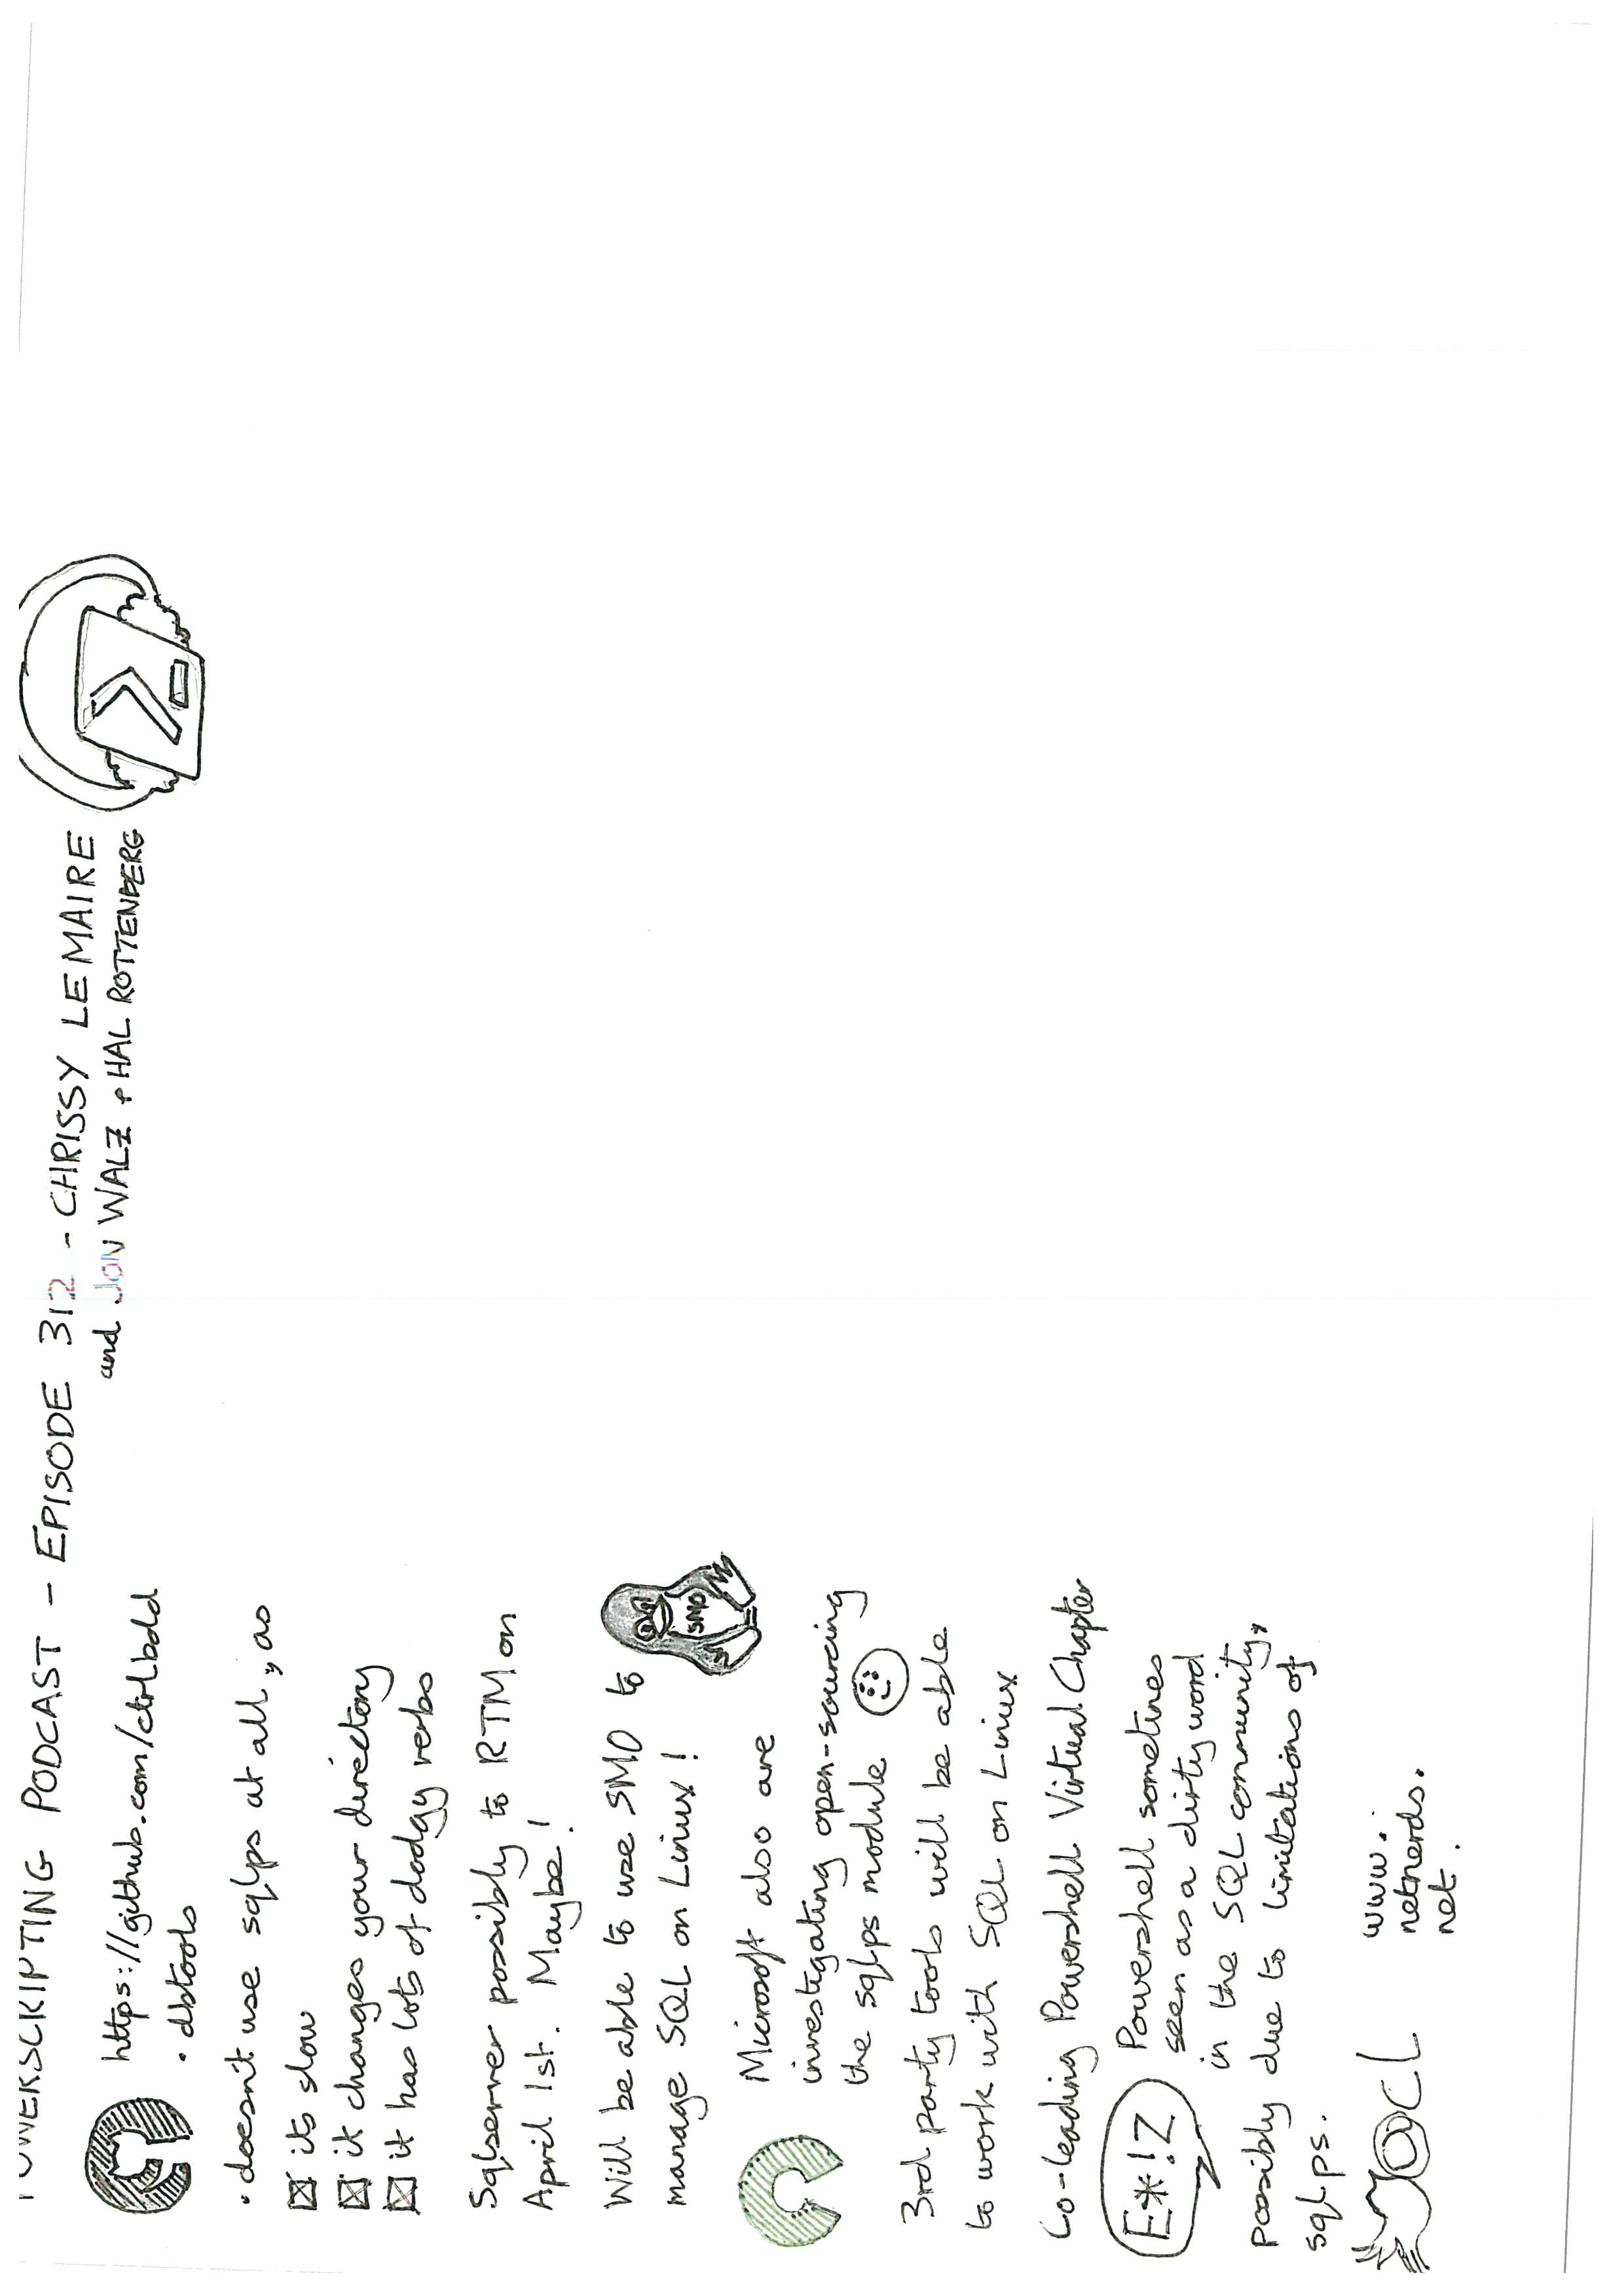 POWERSCRIPTING PODCAST - EPISODE 312 - CHRISSY LEMAIRE
and JON WALZ + HAL ROTTENBERG
https://github.com/ctrlbold
• dbtools
• doesn't use sqlps at all, as
☒ its slow
☒ it changes your directory
☒ it has lots of dodgy verbs
Sqlserver possibly to RTM on
April 1st. Maybe!
Will be able to use SMO to
manage SQL on Linux!
SMO
Microsoft also are
investigating open-sourcing
the sqlps module
3rd party tools will be able
to work with SQL on Linux
Co-leading Powershell Virtual Chapter
E*!Z
Powershell sometimes
seen as a dirty word
in the SQL community,
possibly due to limitations of
sqlps.
@cl
www.
netnerds.
net.